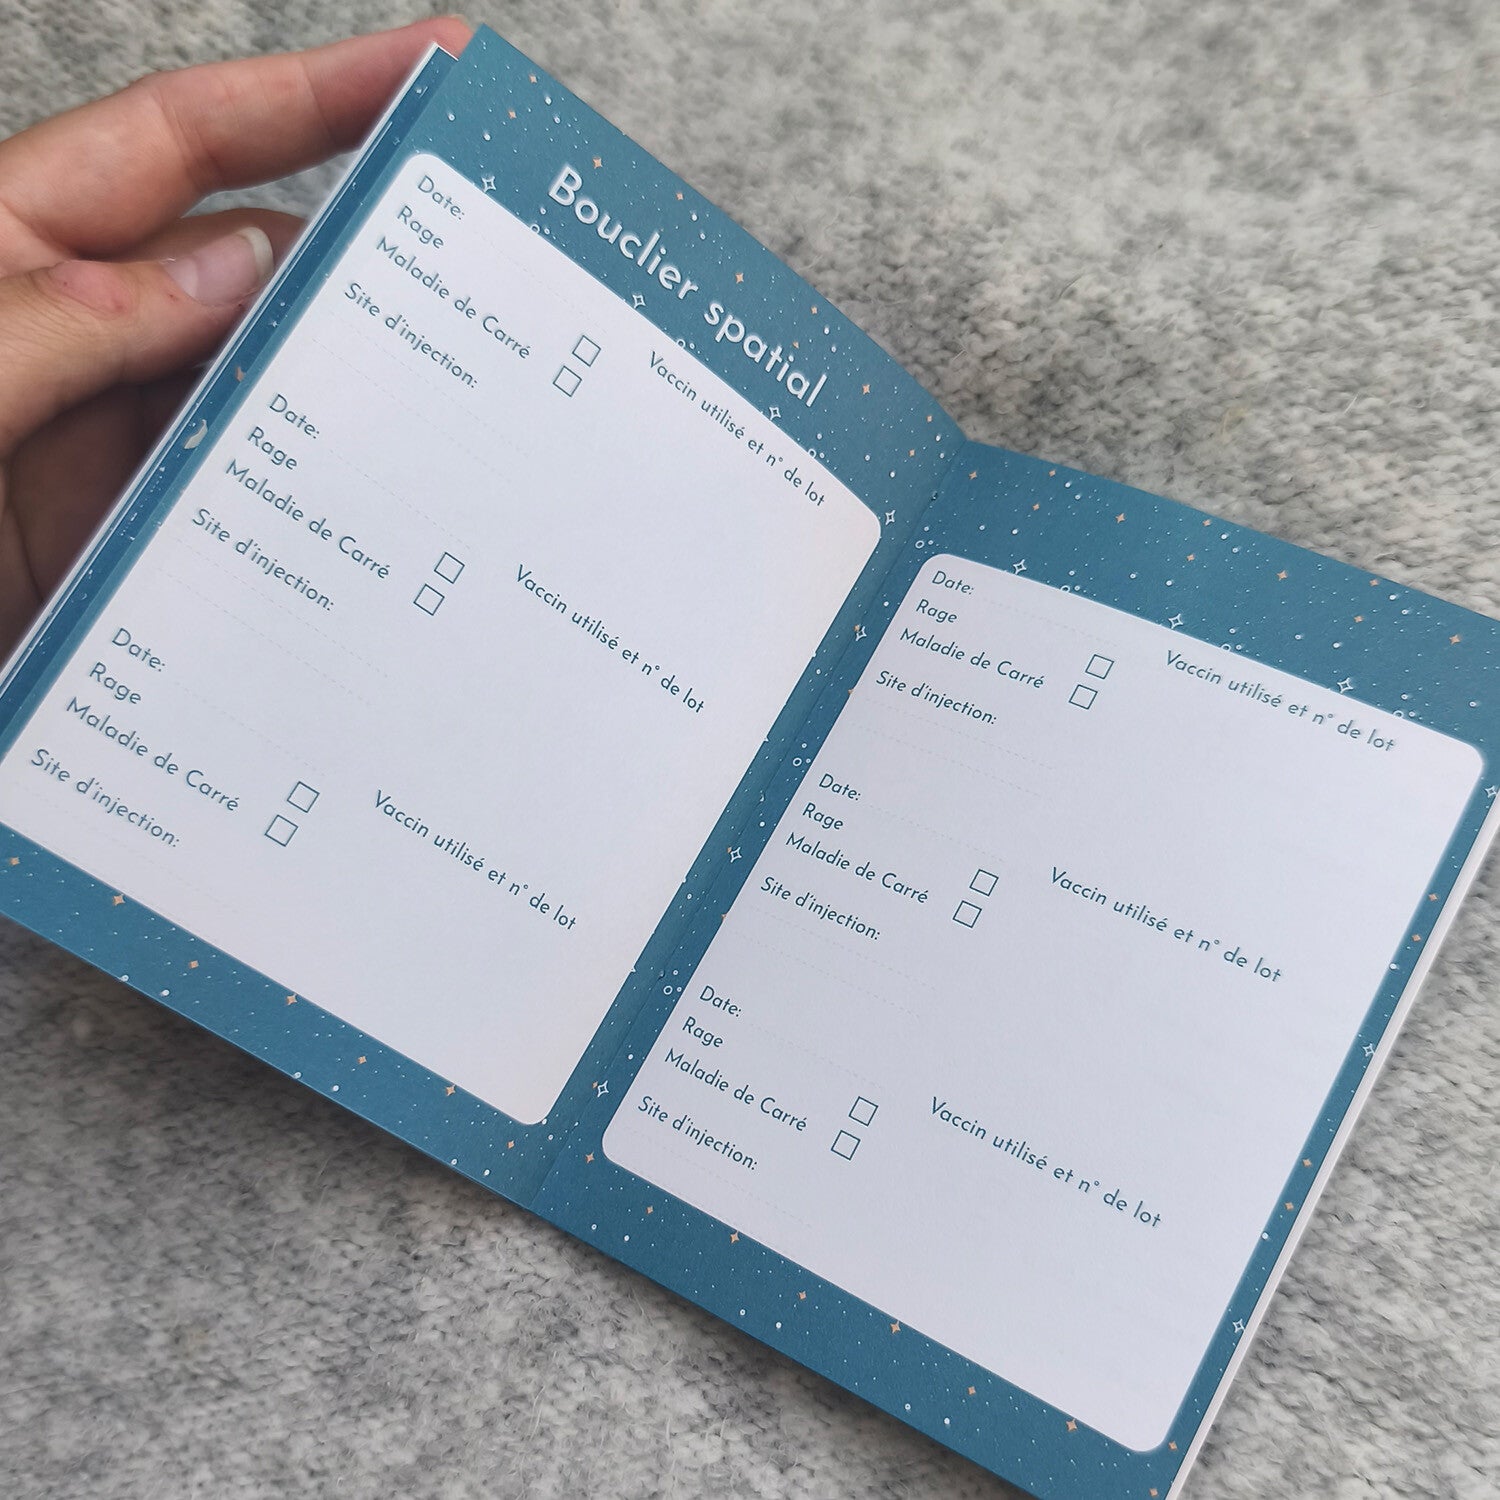 Bouclier spatial
Date:
Rage
Maladie de Carré
Site d'injection:
Vaccin utilisé et n° de lot
Date:
Rage
Maladie de Carré
Site d'injection:
Vaccin utilisé et n° de lot
Date:
Rage
Maladie de Carré
Site d'injection:
Vaccin utilisé et n° de lot
Date:
Rage
Maladie de Carré
Site d'injection:
Vaccin utilisé et n° de lot
Date:
Rage
Maladie de Carré
Site d'injection:
Vaccin utilisé et n° de lot
Date:
Rage
Maladie de Carré
Site d'injection:
Vaccin utilisé et n° de lot